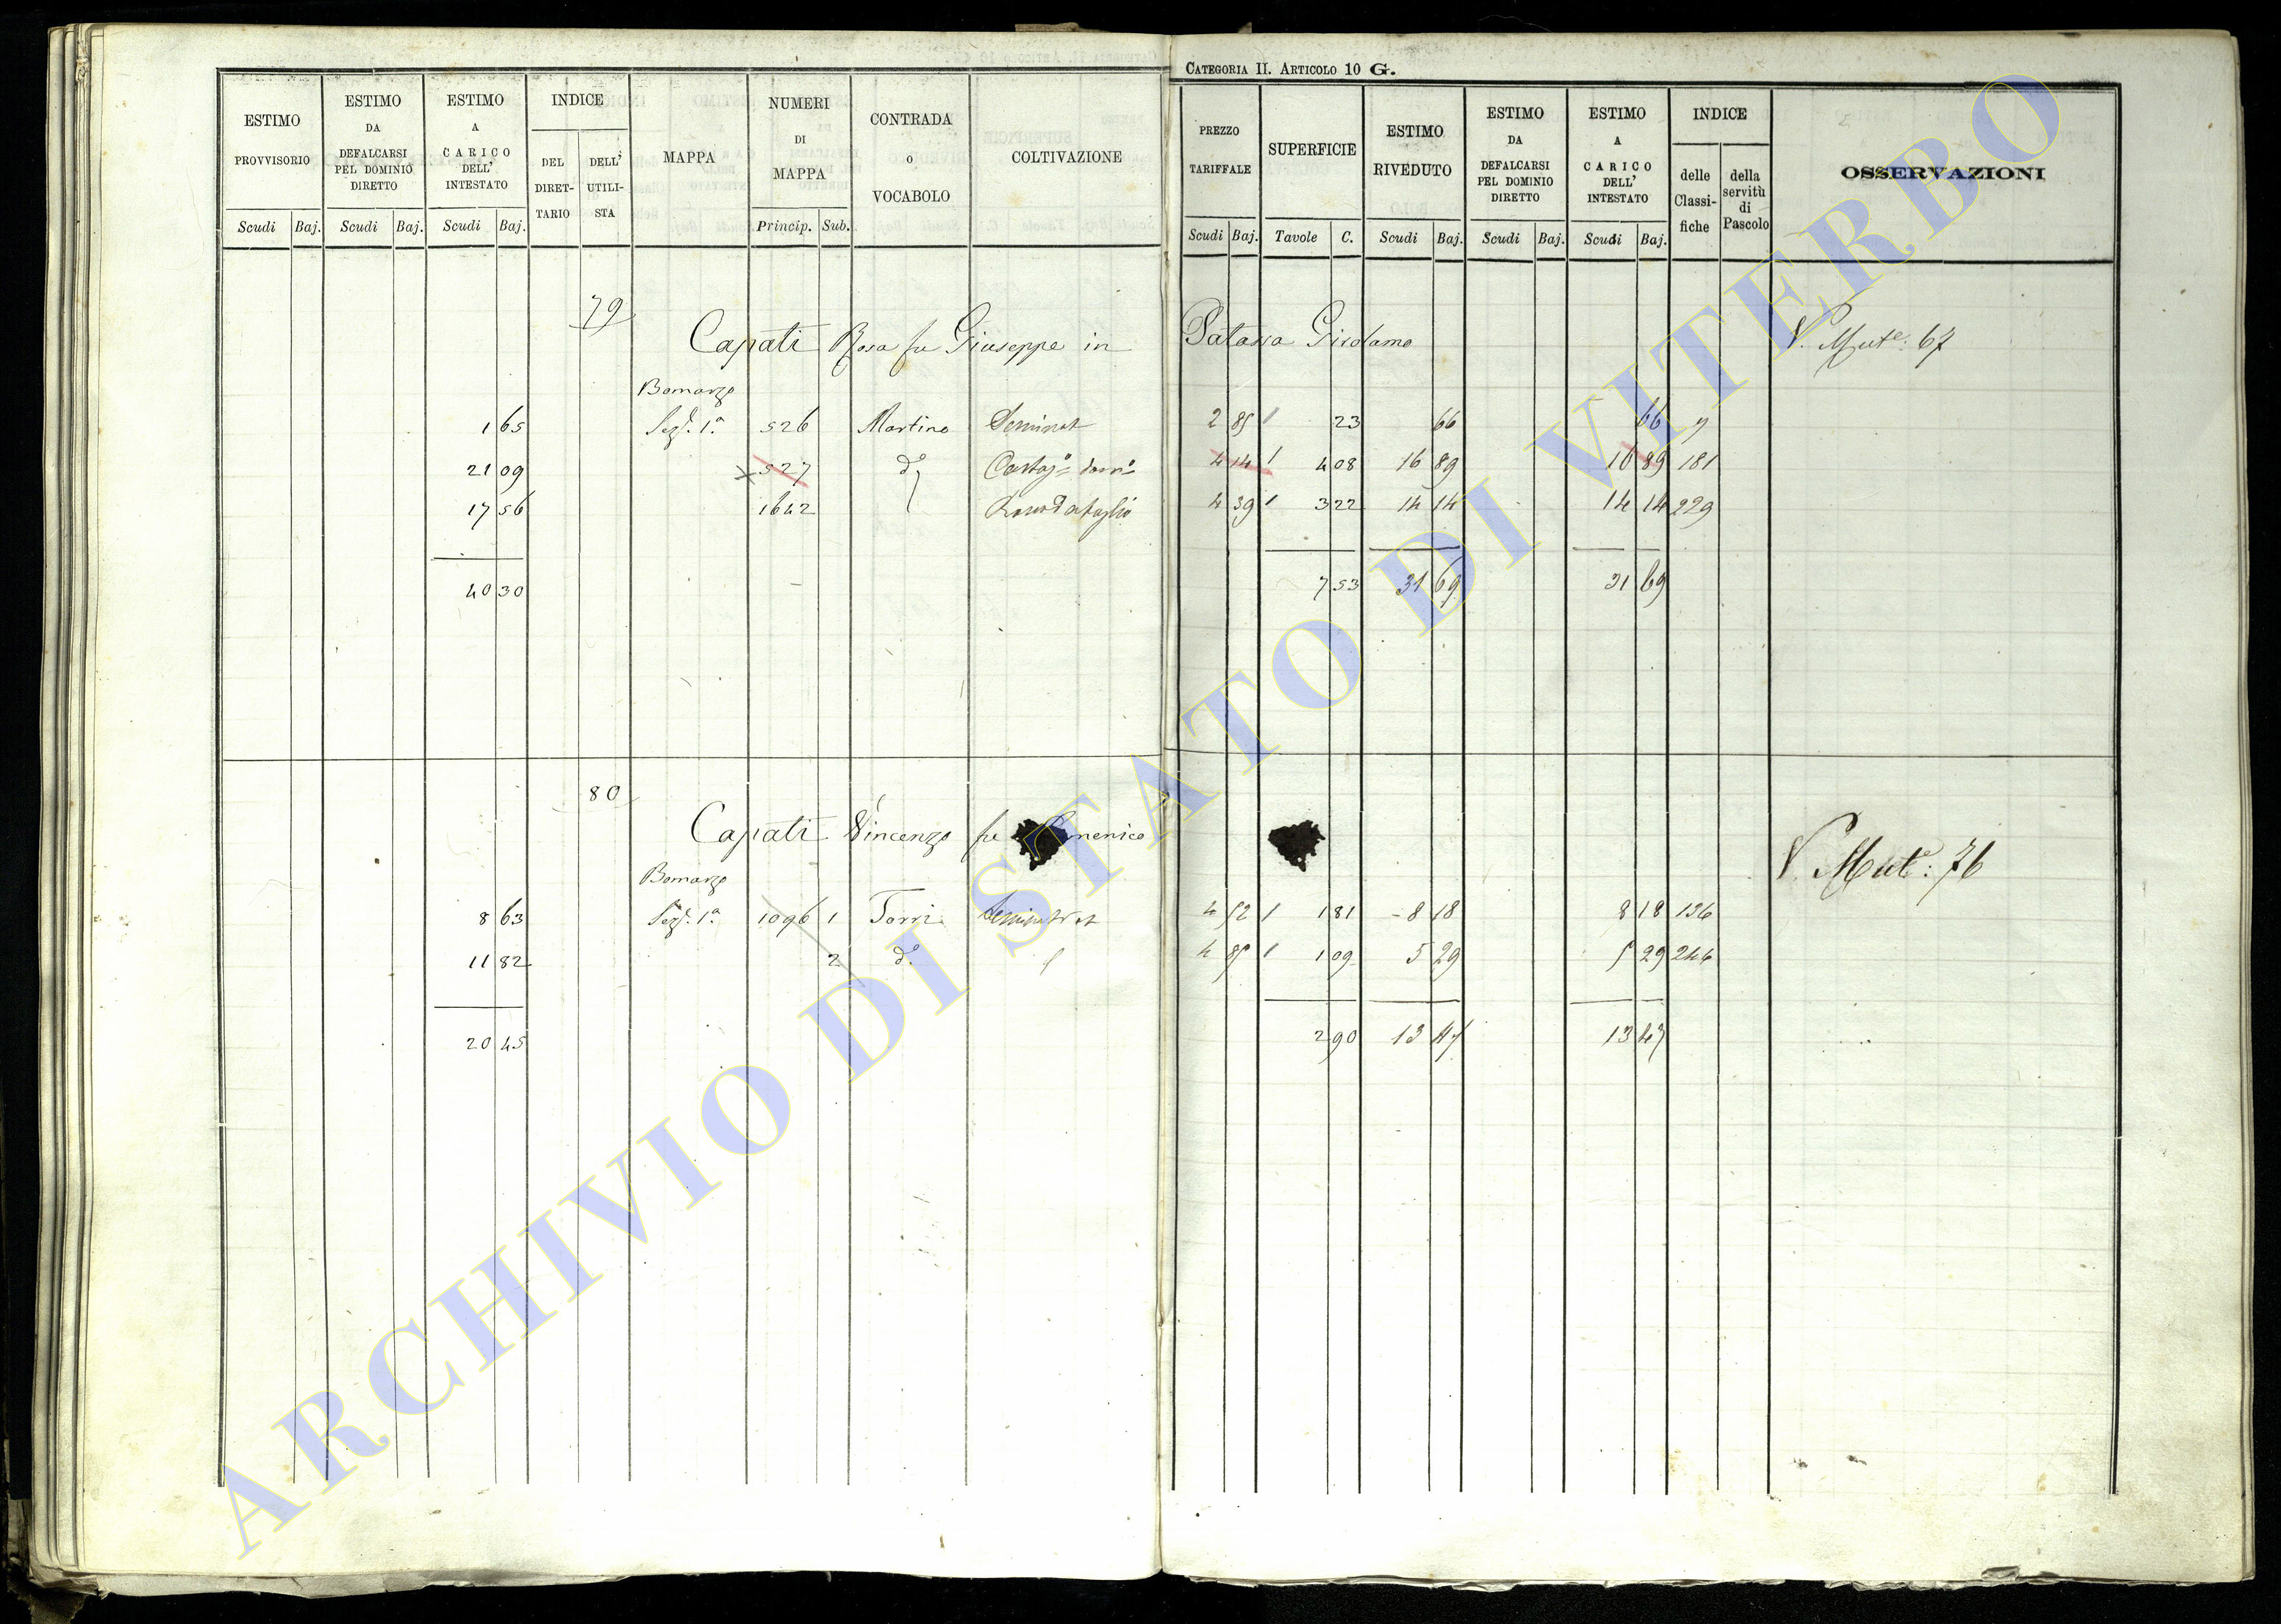 CATEGORIA II. ARTICOLO 10 G.
ESTIMO PROVVISORIO Scudi Baj.
ESTIMO DA DEFALCARSI PEL DOMINIO DIRETTO Scudi Baj.
ESTIMO A CARICO DELL' INTESTATO Scudi Baj.
INDICE DEL DIRET- TARIO DELL' UTILI- STA
MAPPA
NUMERI DI MAPPA Princip. Sub.
CONTRADA o VOCABOLO
COLTIVAZIONE
PREZZO TARIFFALE Scudi Baj.
SUPERFICIE Tavole C.
ESTIMO RIVEDUTO Scudi Baj.
ESTIMO DA DEFALCARSI PEL DOMINIO DIRETTO Scudi Baj.
ESTIMO A CARICO DELL' INTESTATO Scudi Baj.
INDICE delle Classi- fiche della servitù di Pascolo
OSSERVAZIONI
79
Capati Rosa fu Giuseppe in Girolamo V. Mut.e: 67
Bomarzo
1 65 Sez. 1.a 526 Martino Seminat 2 85 1 23 66 66
21 09 527 d.o 4 14 1 4 08 16 89 16 89 181
17 56 1642 4 39 1 3 22 14 14 14 14 229
40 30 7 53 31 69 31 69
80
Capati Vincenzo fu V. Mut.e: 76
Bomarzo
8 63 Sez. 1.a 1096 1 Torri 4 52 1 1 81 8 18 8 18 136
11 82 2 d.o 4 85 1 1 09 5 29 5 29 246
20 45 2 90 13 47 13 47
ARCHIVIO DI STATO DI VITERBO